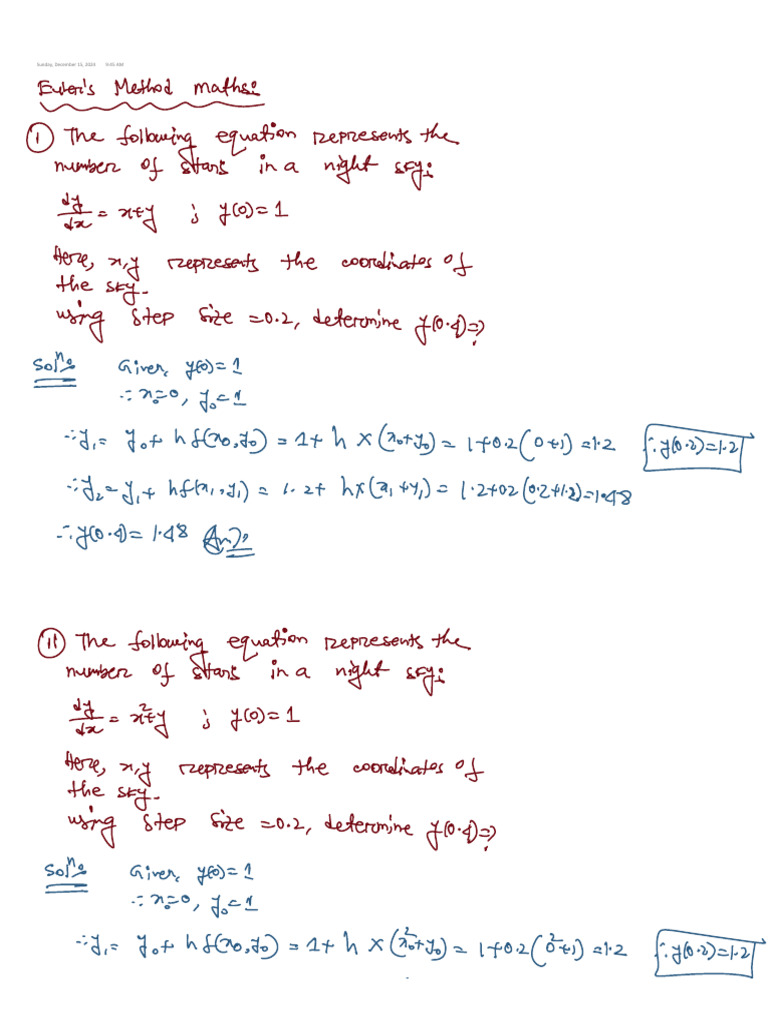 Sunday, December 15, 2024 9:45 AM
Euler's Method maths:
(I) The following equation represents the
number of stars in a night sky:
dy/dx = x+y ; y(0)=1
Here, x,y represents the coordinates of
the sky.
using step size =0.2, determine y(0.4)=?
Solⁿ: Given, y(0)=1
∴ x₀=0, y₀=1
∴ y₁= y₀+ h f(x₀,y₀) = 1+ h × (x₀+y₀) = 1+0.2(0+1) =1.2 ∴ y(0.2)=1.2
∴ y₂= y₁+ hf(x₁,y₁) = 1.2+ h×(x₁+y₁) = 1.2+02(0.2+1.2)=1.48
∴ y(0.4)= 1.48 (Ans).
(II) The following equation represents the
number of stars in a night sky:
dy/dx = x²+y ; y(0)=1
Here, x,y represents the coordinates of
the sky.
using step size =0.2, determine y(0.4)=?
Solⁿ: Given, y(0)=1
∴ x₀=0, y₀=1
∴ y₁= y₀+ h f(x₀,y₀) = 1+ h × (x₀²+y₀) = 1+0.2(0²+1) =1.2 ∴ y(0.2)=1.2